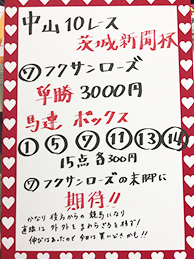 中山10レース
茨城新聞杯
⑦フクサンローズ
単勝 3000円
馬連 ボックス
①⑤⑦⑪⑬⑭
15点各300円
⑦フクサンローズの末脚に
期待!!
かなり後方からの競馬になり
直線は外々をまわらざるを得ず!
伸びはあったので今回は買いどきかも!!